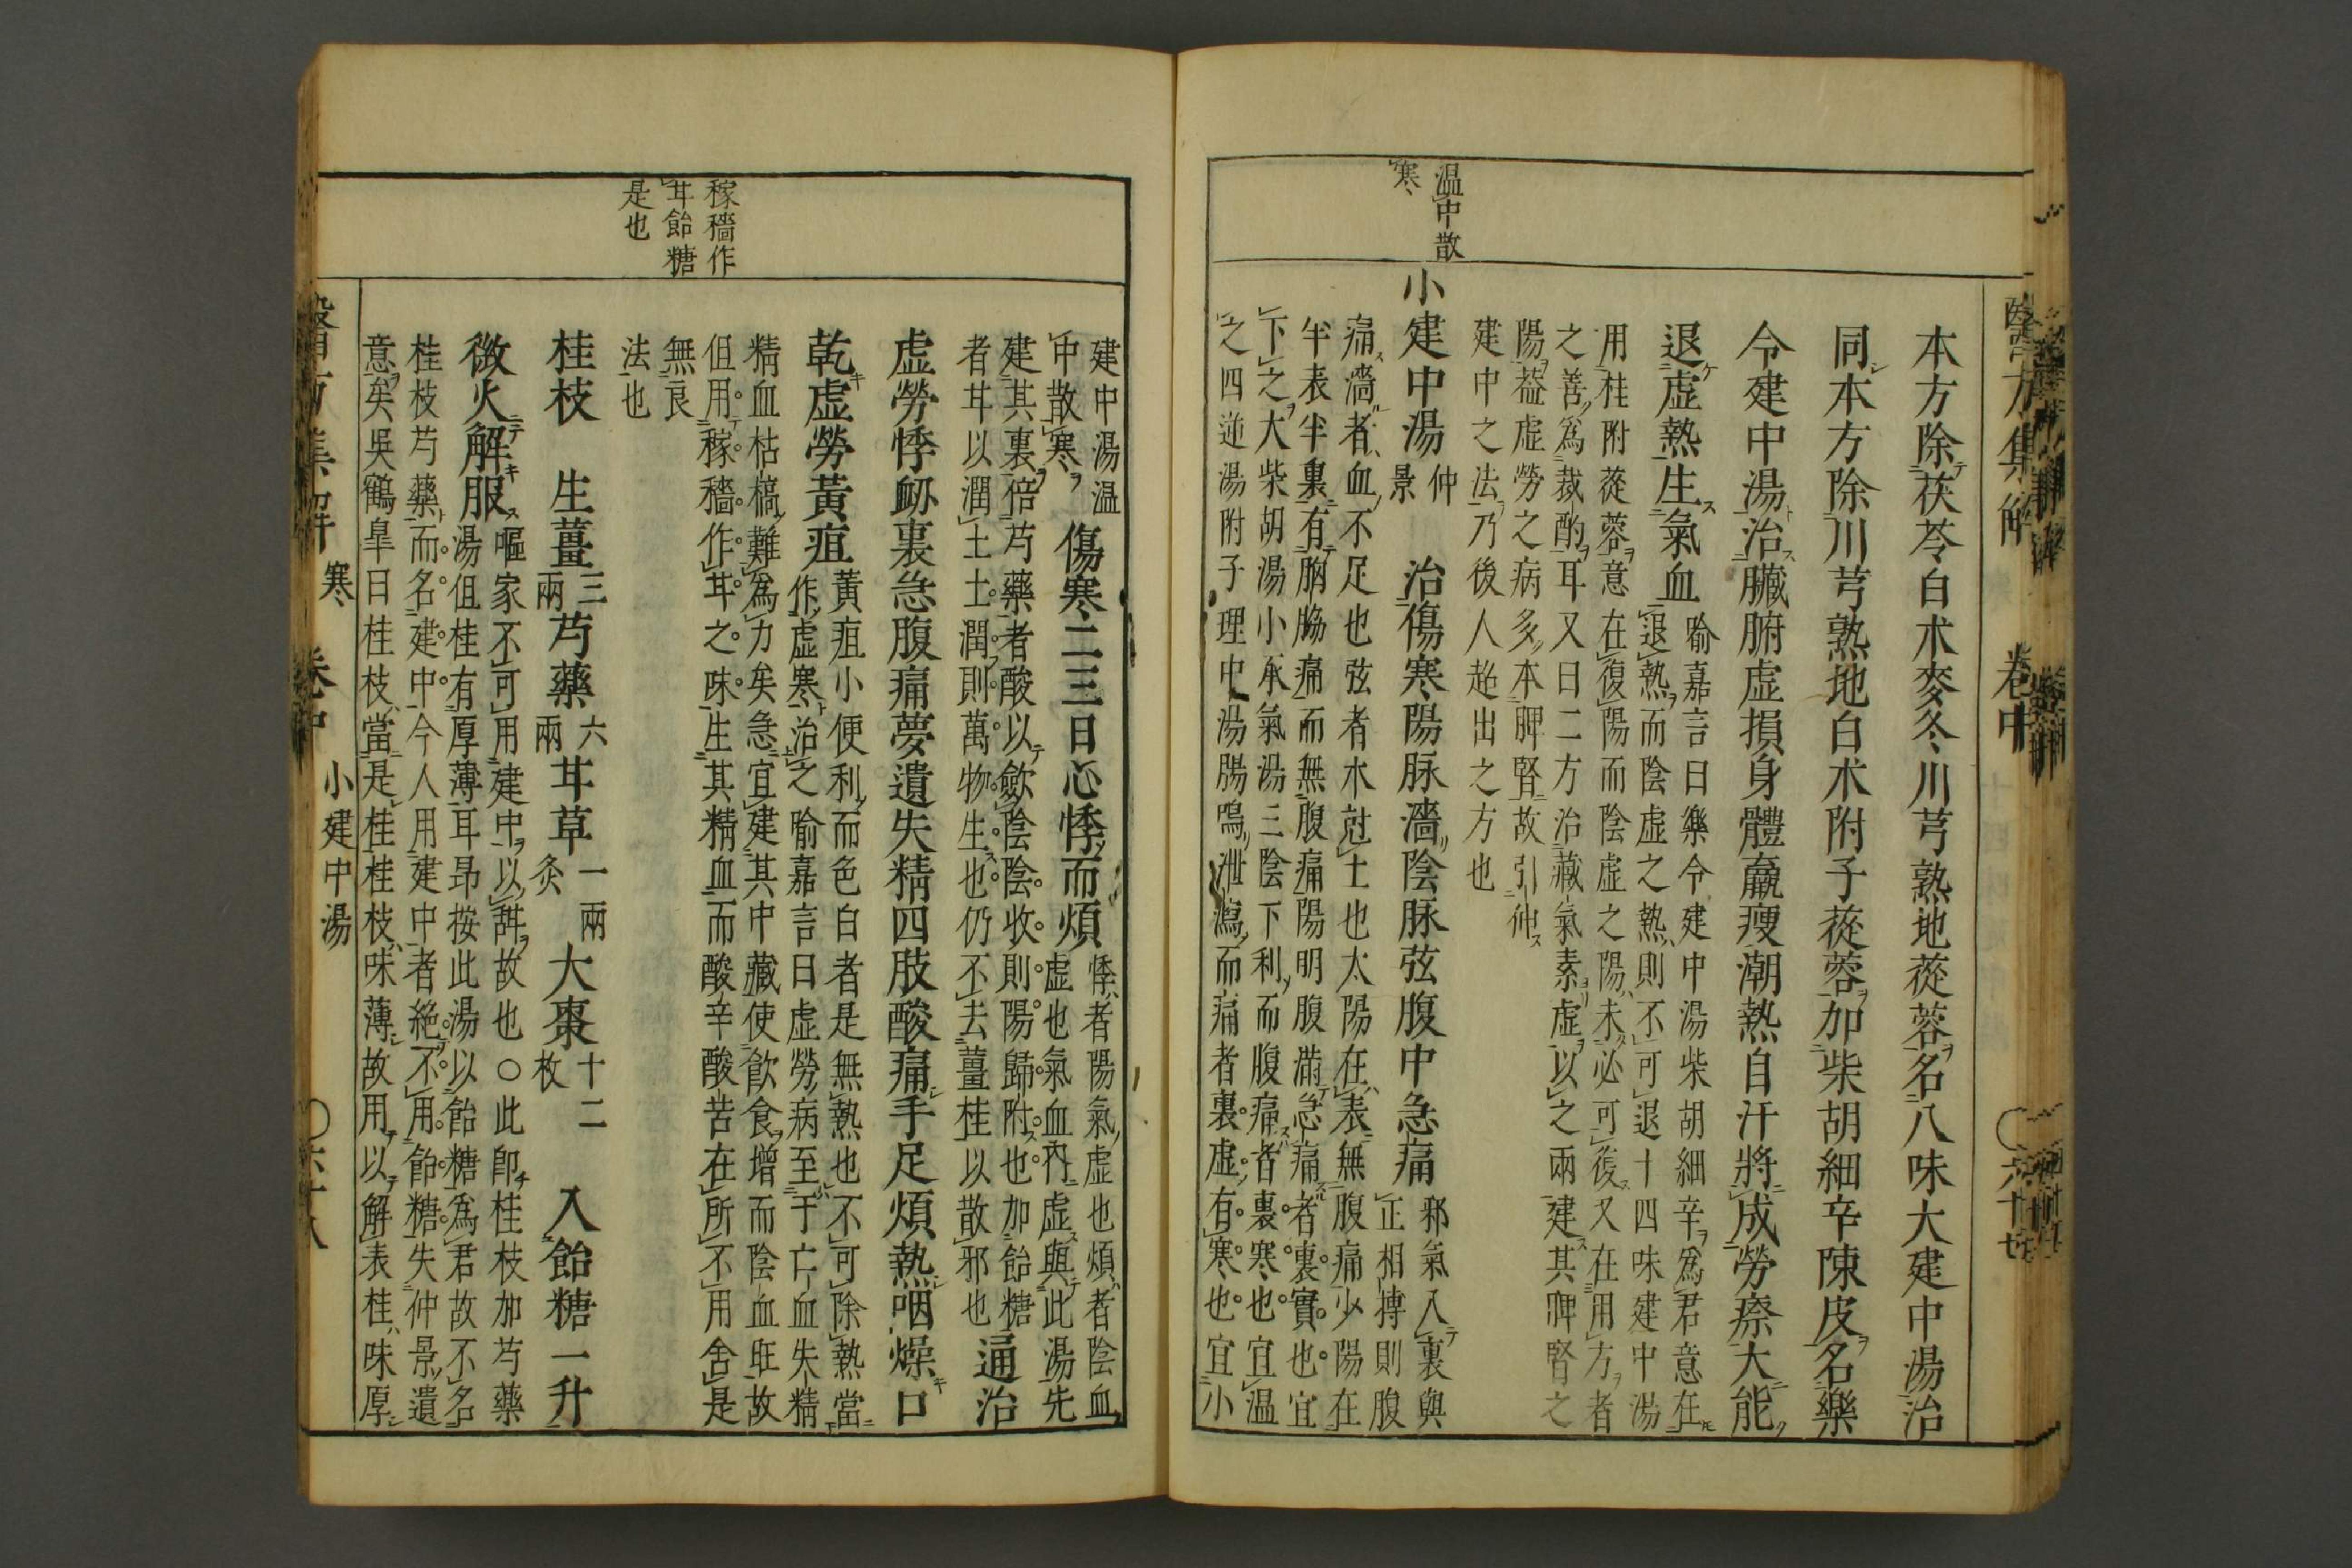 醫方集解 卷中 ○六十七
本方除茯苓白朮麥冬川芎熟地蓯蓉名八味大建中湯治
同本方除川芎熟地白朮附子蓯蓉加柴胡細辛陳皮名樂
令建中湯治臟腑虛損身體羸瘦潮熱自汗將成勞瘵大能
退虛熱生氣血
喻嘉言曰樂令建中湯柴胡細辛爲君意在
退熱而陰虛之熱則不可退十四味建中湯
用桂附蓯蓉意在復陽而陰虛之陽未必可復又在用方者
之善爲裁酌耳又曰二方治藏氣素虛以之兩建其脾腎之
陽葢虛勞之病多本脾腎故引仲
建中之法乃後人超出之方也
温中散
寒
小建中湯
仲
景
治傷寒陽脉濇陰脉弦腹中急痛
邪氣入裏與
正相搏則腹
痛濇者血不足也弦者木尅土也太陽在表無腹痛少陽在
半表半裏有胸脇痛而無腹痛陽明腹滿急痛者裏實也宜
下之大柴胡湯小承氣湯三陰下利而腹痛者裏寒也宜温
之四逆湯附子理中湯腸鳴泄瀉而痛者裏虛有寒也宜小
建中湯温
中散寒
傷寒二三日心悸而煩
悸者陽氣虛也煩者陰血
虛也氣血內虛與此湯先
建其裏倍芍藥者酸以歛陰陰收則陽歸附也加飴糖
者甘以潤土土潤則萬物生也仍不去薑桂以散邪也
通治
虛勞悸衂裏急腹痛夢遺失精四肢酸痛手足煩熱咽燥口
乾虛勞黃疸
黃疸小便利而色白者是無熱也不可除熱當
作虛寒治之喻嘉言曰虛勞病至于亡血失精
精血枯槁難爲力矣急宜建其中藏使飲食增而陰血旺故
但用稼穡作甘之味生其精血而酸辛酸苦在所不用舍是
無良
法也
稼穡作
甘飴糖
是也
桂枝 生薑
三
兩
芍藥
六
兩
甘草
一兩
炙
大棗
十二
枚
入飴糖一升
微火解服
嘔家不可用建中以甜故也○此卽桂枝加芍藥
湯但桂有厚薄耳昂按此湯以飴糖爲君故不名
桂枝芍藥而名建中今人用建中者絕不用飴糖失仲景遺
意矣吳鶴皐曰桂枝當是桂桂枝味薄故用以解表桂味厚
醫方集解 寒 卷中 小建中湯 ○六十八